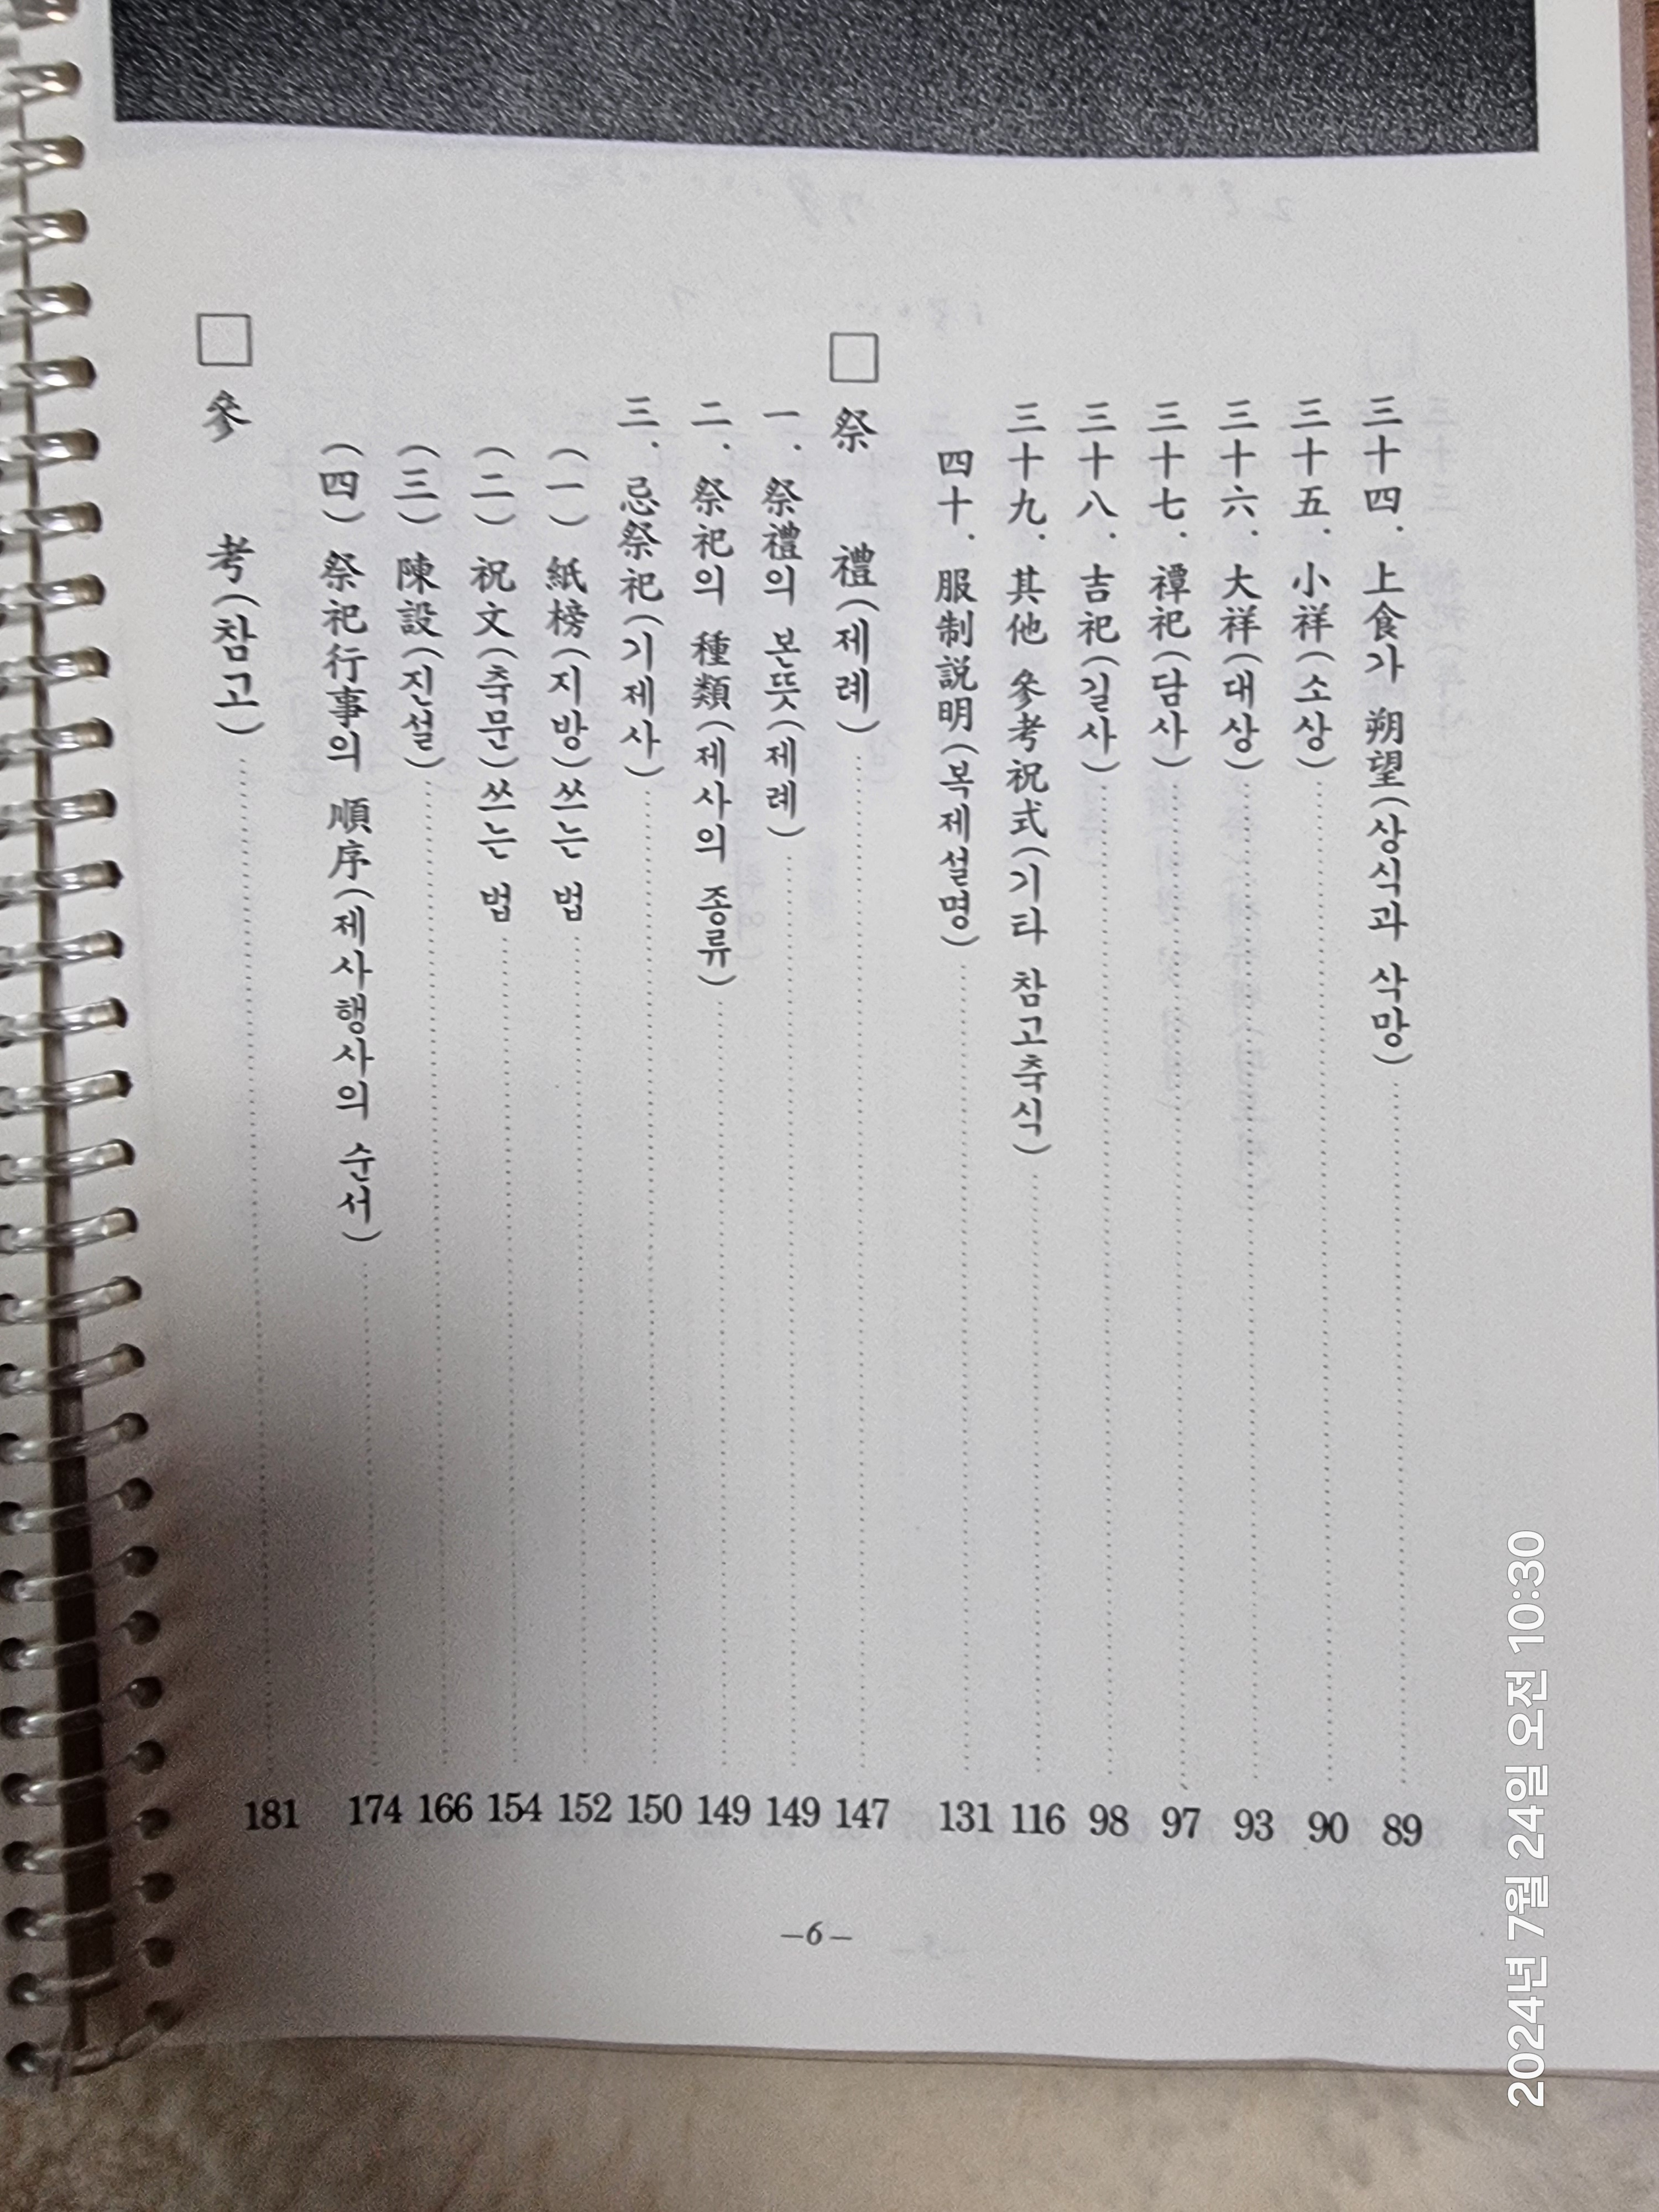 三十四. 上食가 朔望(상식과 삭망) 89
三十五. 小祥(소상) 90
三十六. 大祥(대상) 93
三十七. 禫祀(담사) 97
三十八. 吉祀(길사) 98
三十九. 其他 參考祝式(기타 참고축식) 116
四十. 服制説明(복제설명) 131
□ 祭 禮(제례) 147
一. 祭禮의 본뜻(제례) 149
二. 祭祀의 種類(제사의 종류) 149
三. 忌祭祀(기제사) 150
(一) 紙榜(지방)쓰는 법 152
(二) 祝文(축문)쓰는 법 154
(三) 陳設(진설) 166
(四) 祭祀行事의 順序(제사행사의 순서) 174
□ 參 考(참고) 181
–6–
2024년 7월 24일 오전 10:30